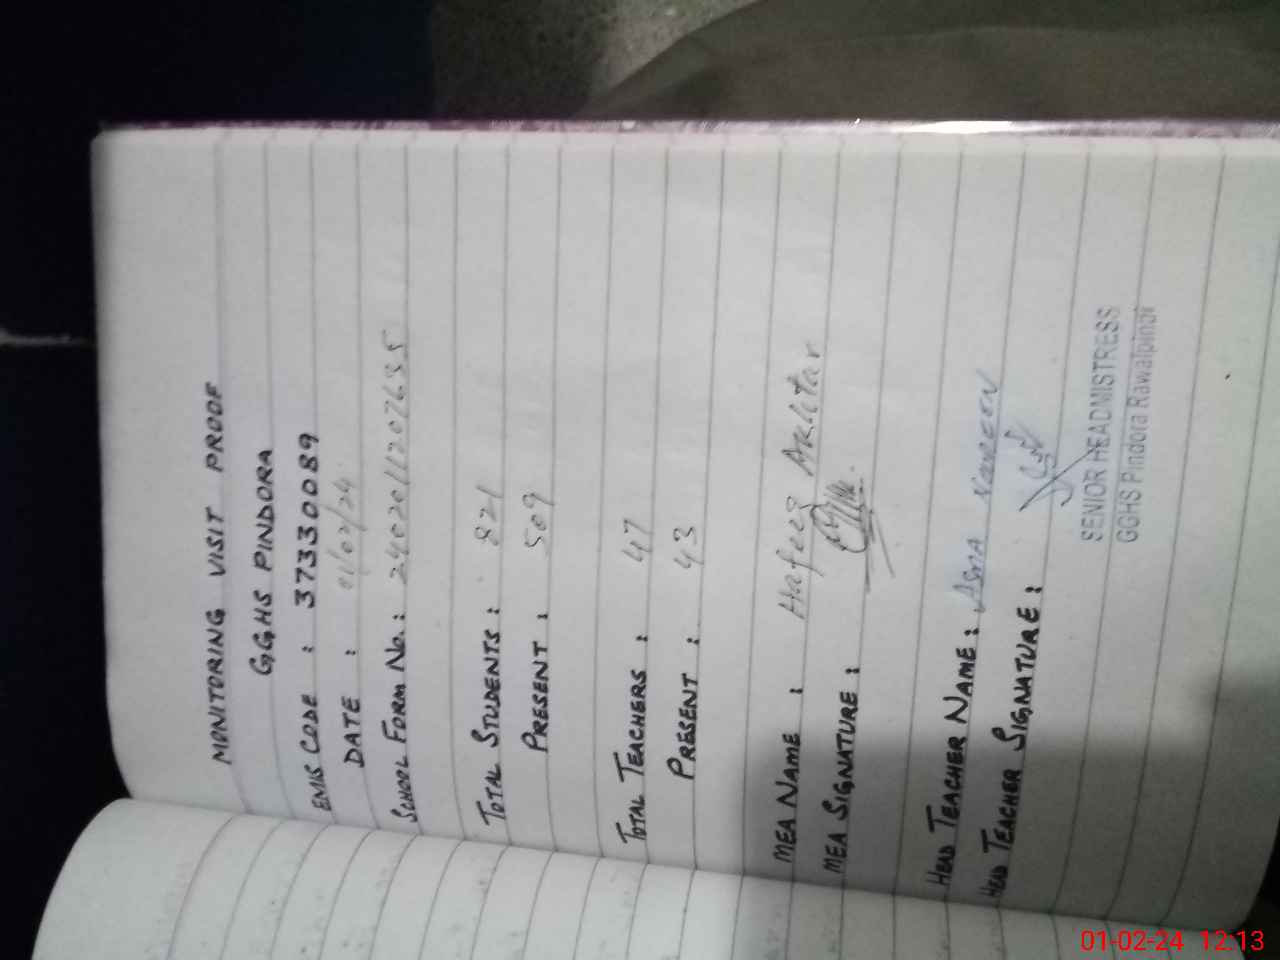 MONITORING VISIT PROOF
GGHS PINDORA
EMIS CODE : 37330089
DATE : 01/02/24
SCHOOL FORM No. : 2402011207635
TOTAL STUDENTS : 821
PRESENT : 509
TOTAL TEACHERS : 47
PRESENT : 43
MEA NAME : Hafeez Akhtar
MEA SIGNATURE :
HEAD TEACHER NAME : ASMA NOREEN
HEAD TEACHER SIGNATURE :
SENIOR HEADMISTRESS
GGHS Pindora Rawalpindi
01-02-24 12:13